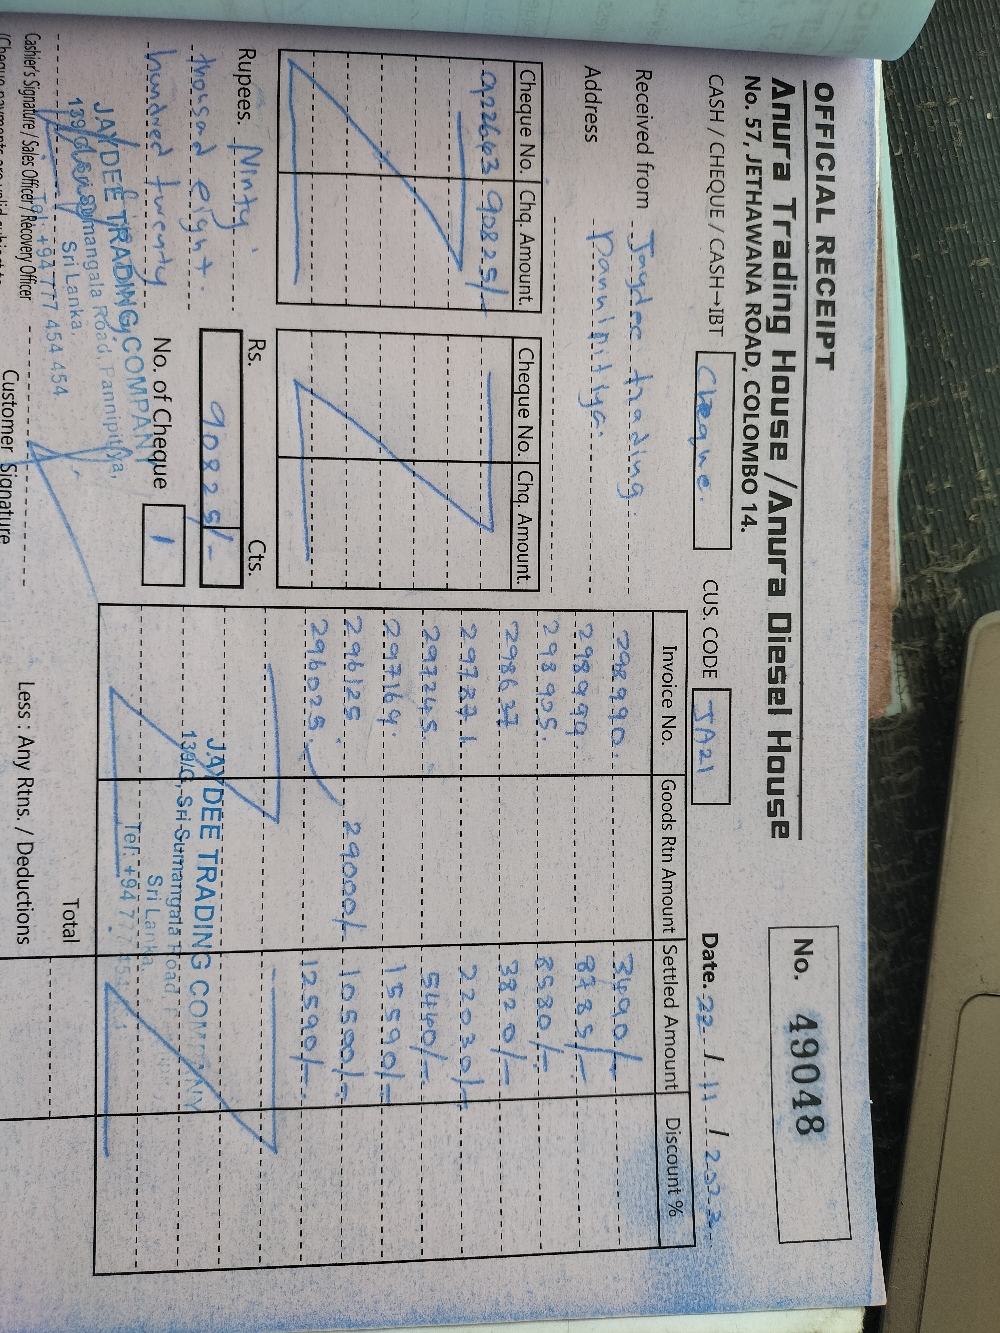 OFFICIAL RECEIPT
Anura Trading House / Anura Diesel House
No. 57, JETHAWANA ROAD, COLOMBO 14.
No. 49048
CASH / CHEQUE / CASH→IBT cheque. CUS. CODE JA21 Date. 22 / 11 / 2022
Received from Jaydee trading.
Address pannipitiya.
Cheque No. Chq. Amount. Cheque No. Chq. Amount.
922643 90825/-
Rupees. Ninty
thousad eight.
hundred twenty
Rs. Cts.
90825/-
No. of Cheque 1
JAYDEE TRADING COMPANY
Sumangala Road, Pannipitiya,
Sri Lanka.
Tel: +94 777 454 454
Cashier's Signature / Sales Officer / Recovery Officer
Customer Signature
Invoice No. Goods Rtn Amount Settled Amount Discount %
298990. 3490/-
298999. 8785/-
298905. 8580/-
298637 3820/-
297871 22030/-
297245 5440/-
297169. 15590/-
296125. 29000/- 10500/-
296025. 12590/-
JAYDEE TRADING COMPANY
139/C, Sri Sumangala Road,
Sri Lanka.
Tel: +94 777 454
Total
Less : Any Rtns. / Deductions